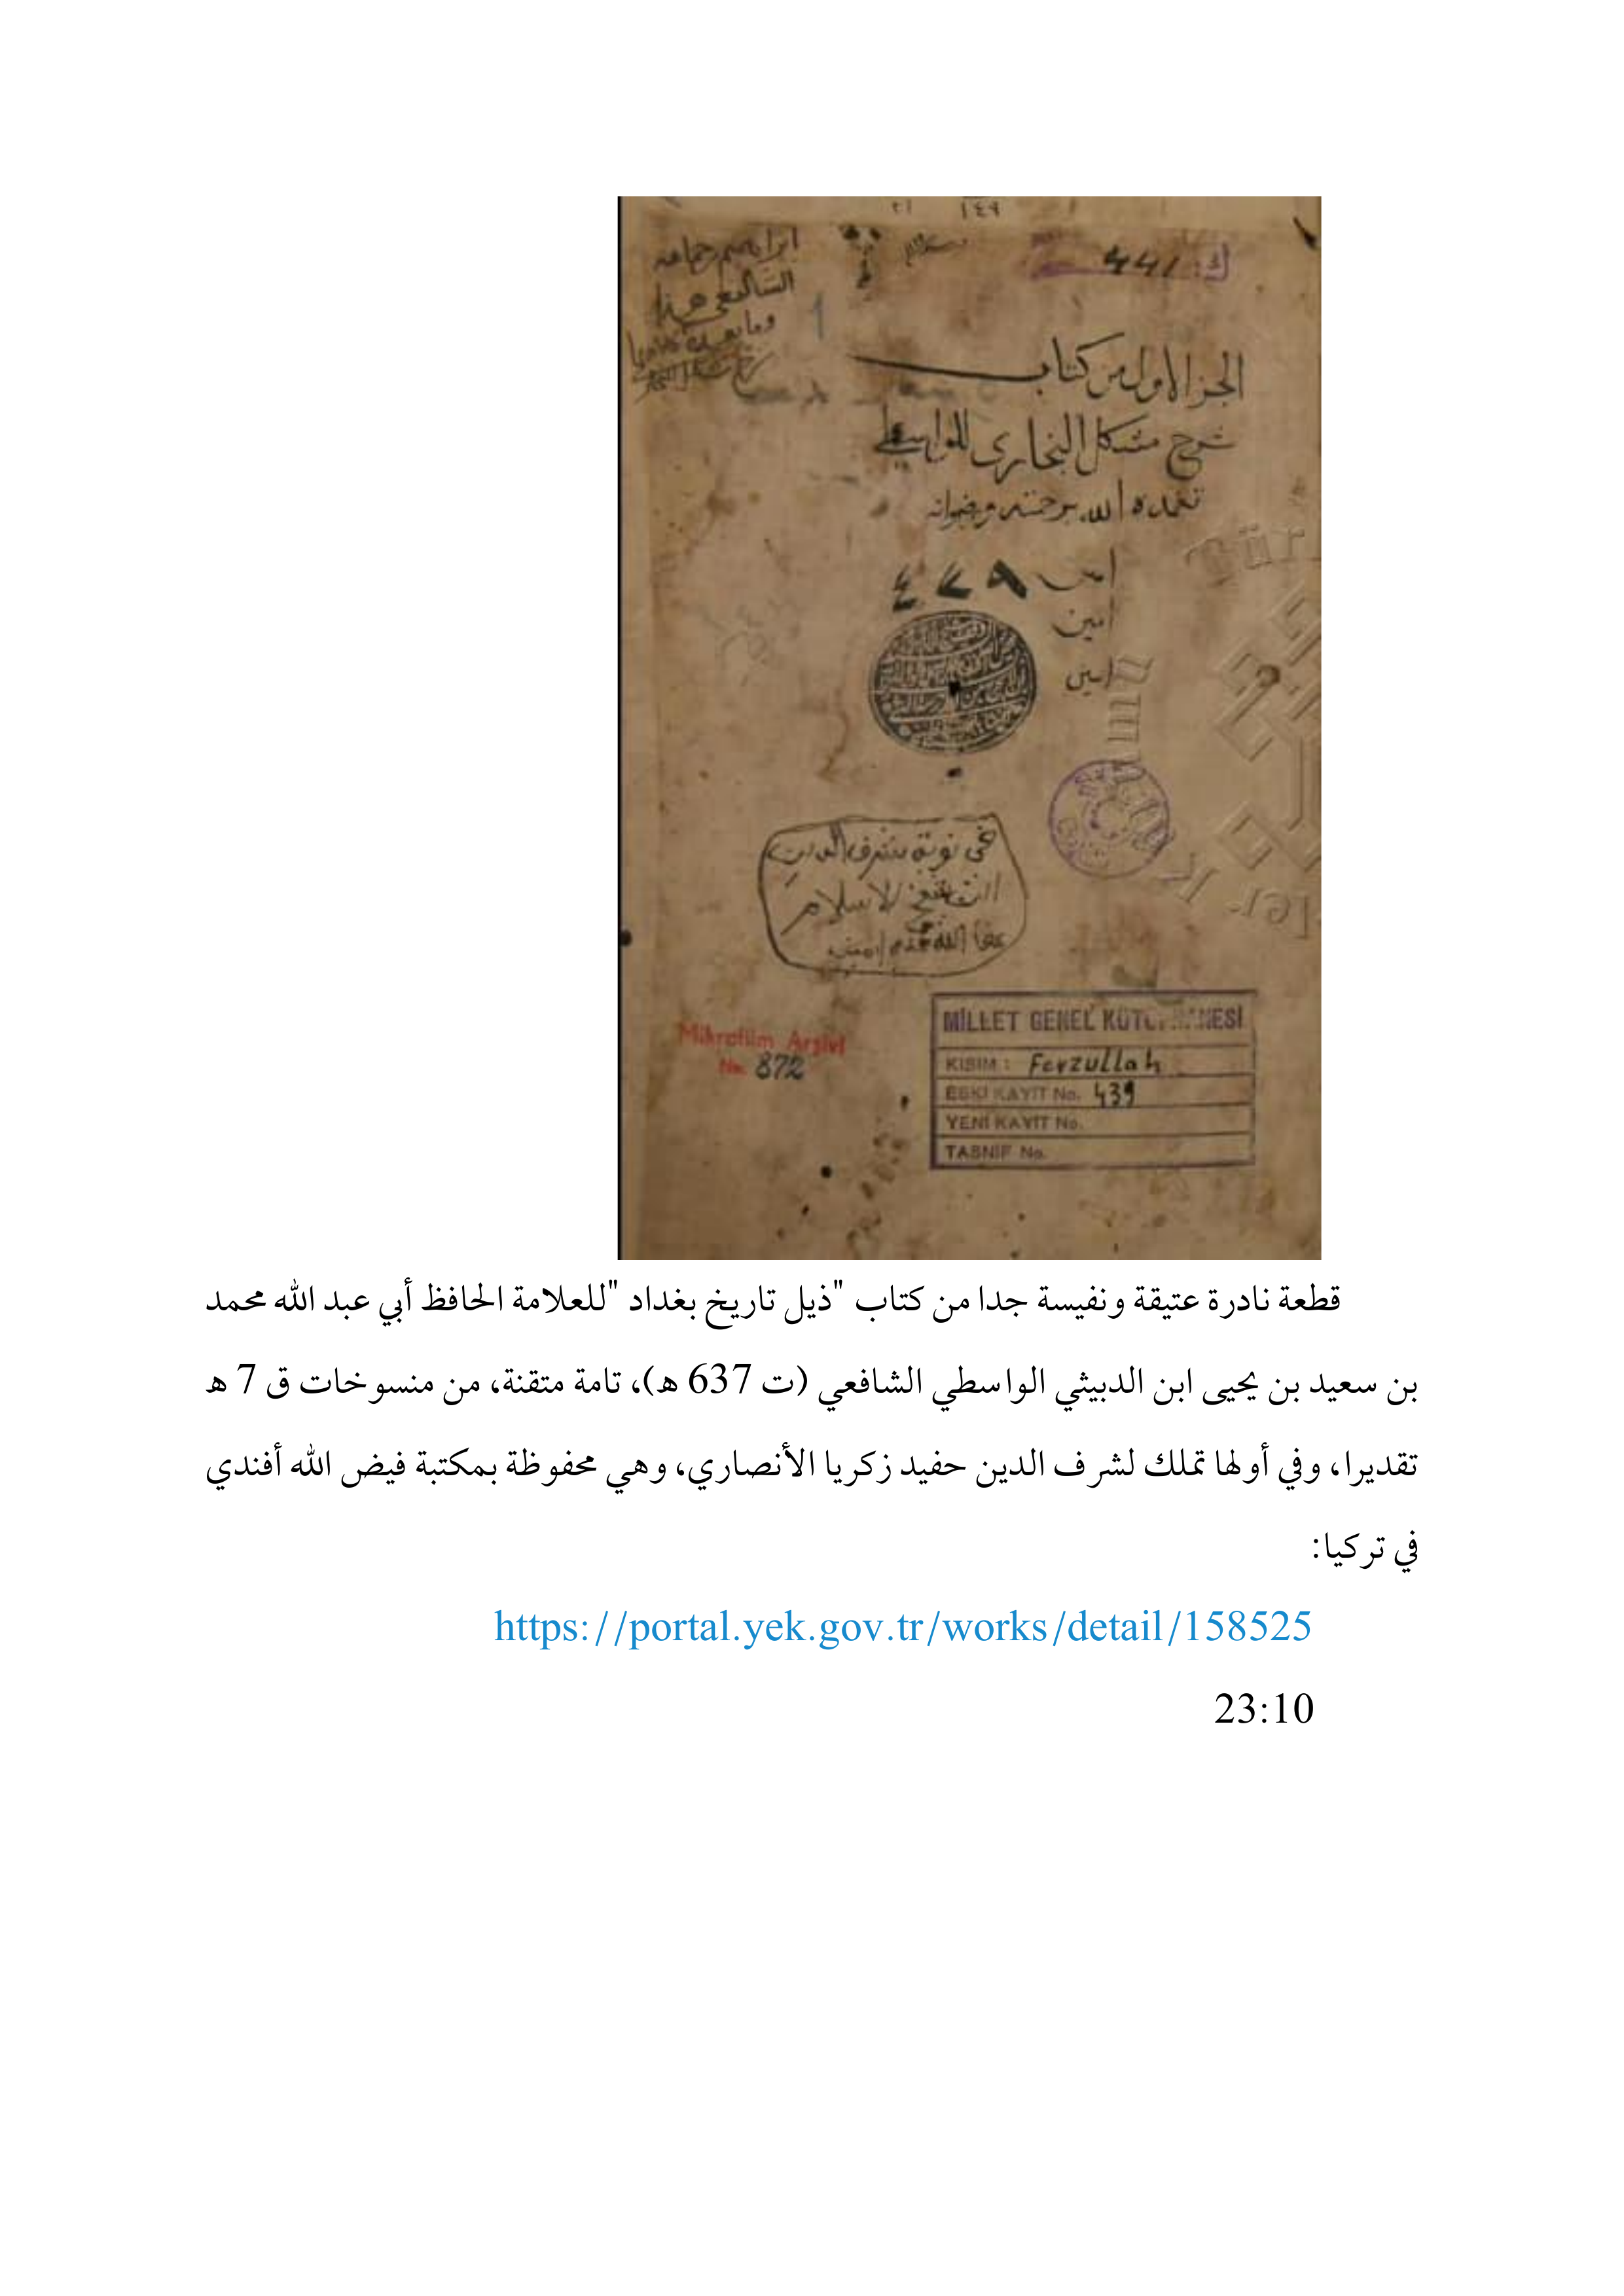 ك: 441
الجزء الاول من كتاب
شرح مشكل البخارى للواسطى
تغمده الله برحمته ورضوانه
امين
امين
امين
فى نوبة شرف الدين
عفا الله عنه امين
Mikrofilm Arşivi
No. 872
MİLLET GENEL KÜTÜPHANESİ
KISIM : Feyzullah
ESKİ KAYIT No. 439
YENİ KAYIT No.
TASNİF No.
قطعة نادرة عتيقة ونفيسة جدا من كتاب "ذيل تاريخ بغداد "للعلامة الحافظ أبي عبد الله محمد
بن سعيد بن يحيى ابن الدبيثي الواسطي الشافعي (ت 637 ه)، تامة متقنة، من منسوخات ق 7 ه
تقديرا، وفي أولها تملك لشرف الدين حفيد زكريا الأنصاري، وهي محفوظة بمكتبة فيض الله أفندي
في تركيا:
https://portal.yek.gov.tr/works/detail/158525
23:10